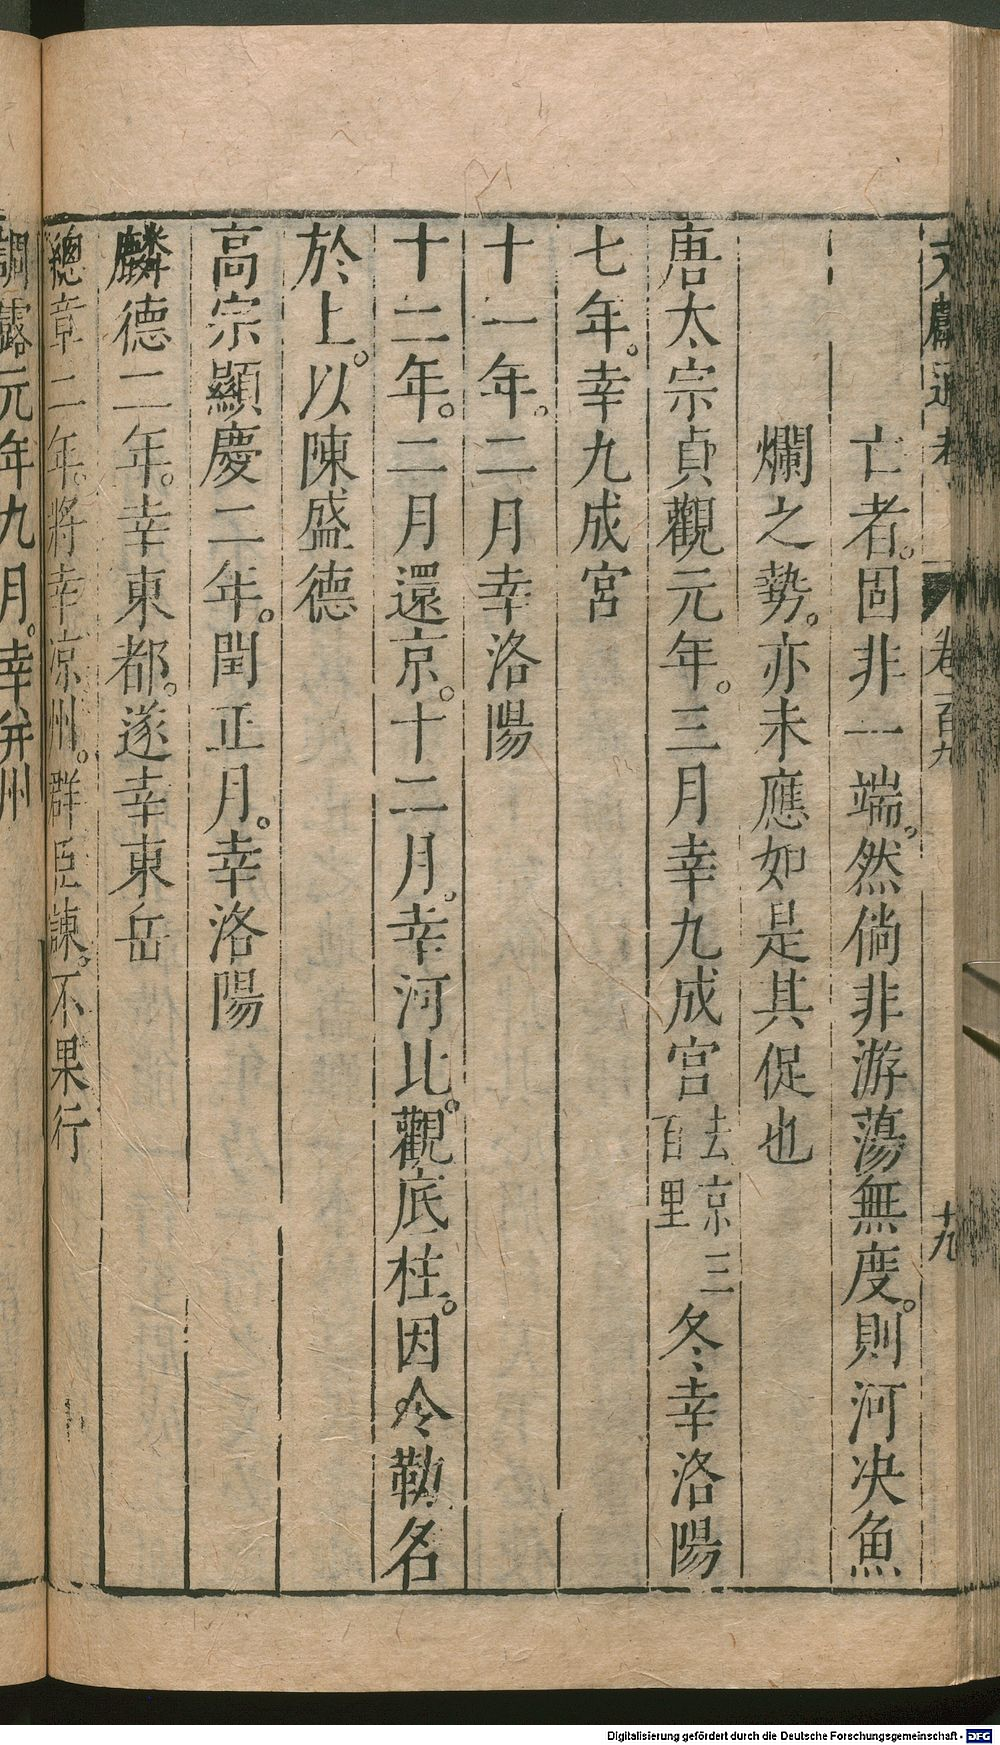 文獻通考 卷百九 十九
亡者。固非一端。然倘非游蕩無度。則河决魚
爛之勢。亦未應如是其促也
唐太宗貞觀元年。三月幸九成宮去京三百里冬幸洛陽
七年。幸九成宮
十一年。二月幸洛陽
十二年。二月還京。十二月。幸河北。觀底柱。因令勒名
於上。以陳盛德
高宗顯慶二年。閏正月。幸洛陽
麟德二年。幸東都。遂幸東岳
總章二年。將幸凉州。群臣諫。不果行
調露元年九月。幸并州
Digitalisierung gefördert durch die Deutsche Forschungsgemeinschaft - DFG